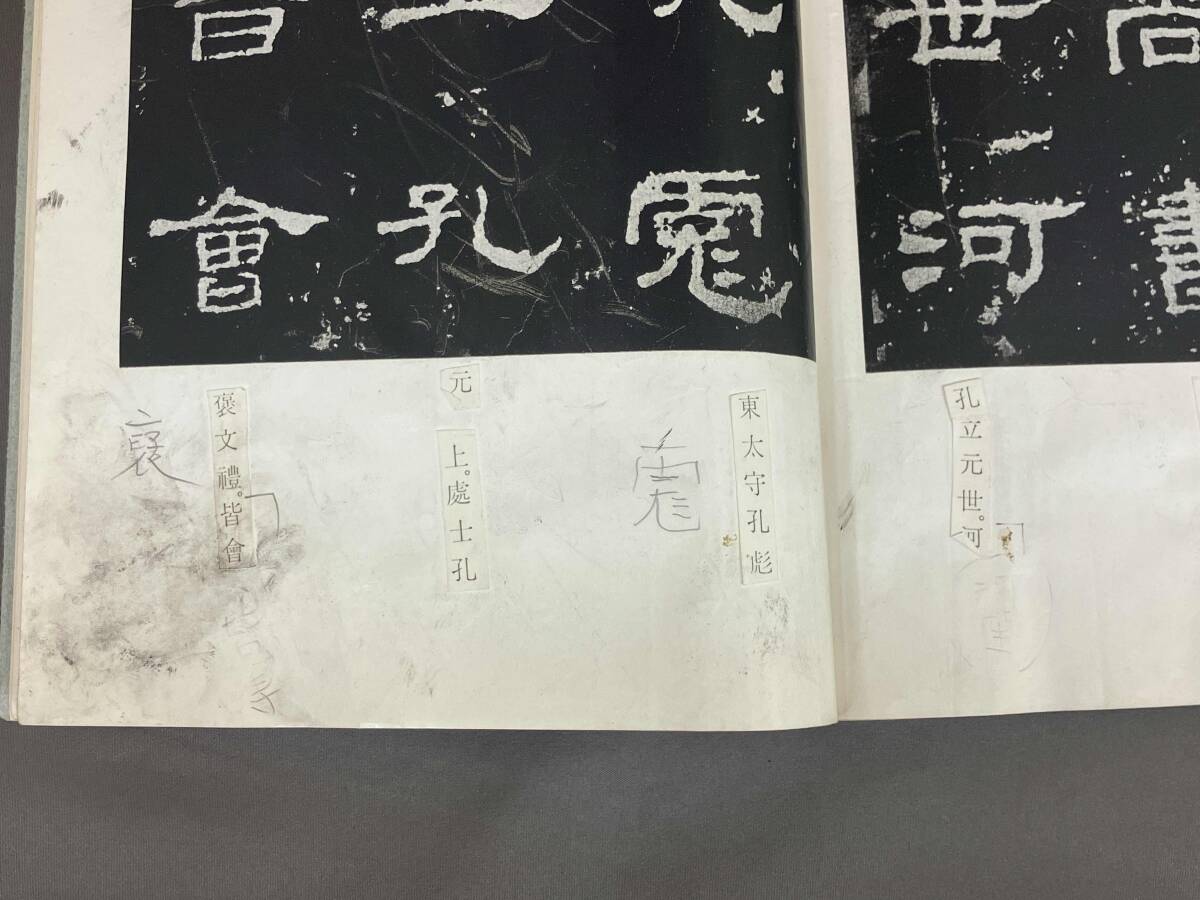 世河
孔彪
士孔
皆會
孔立元世。河
東太守孔彪
元
上。處士孔
褒文禮。皆會
褒